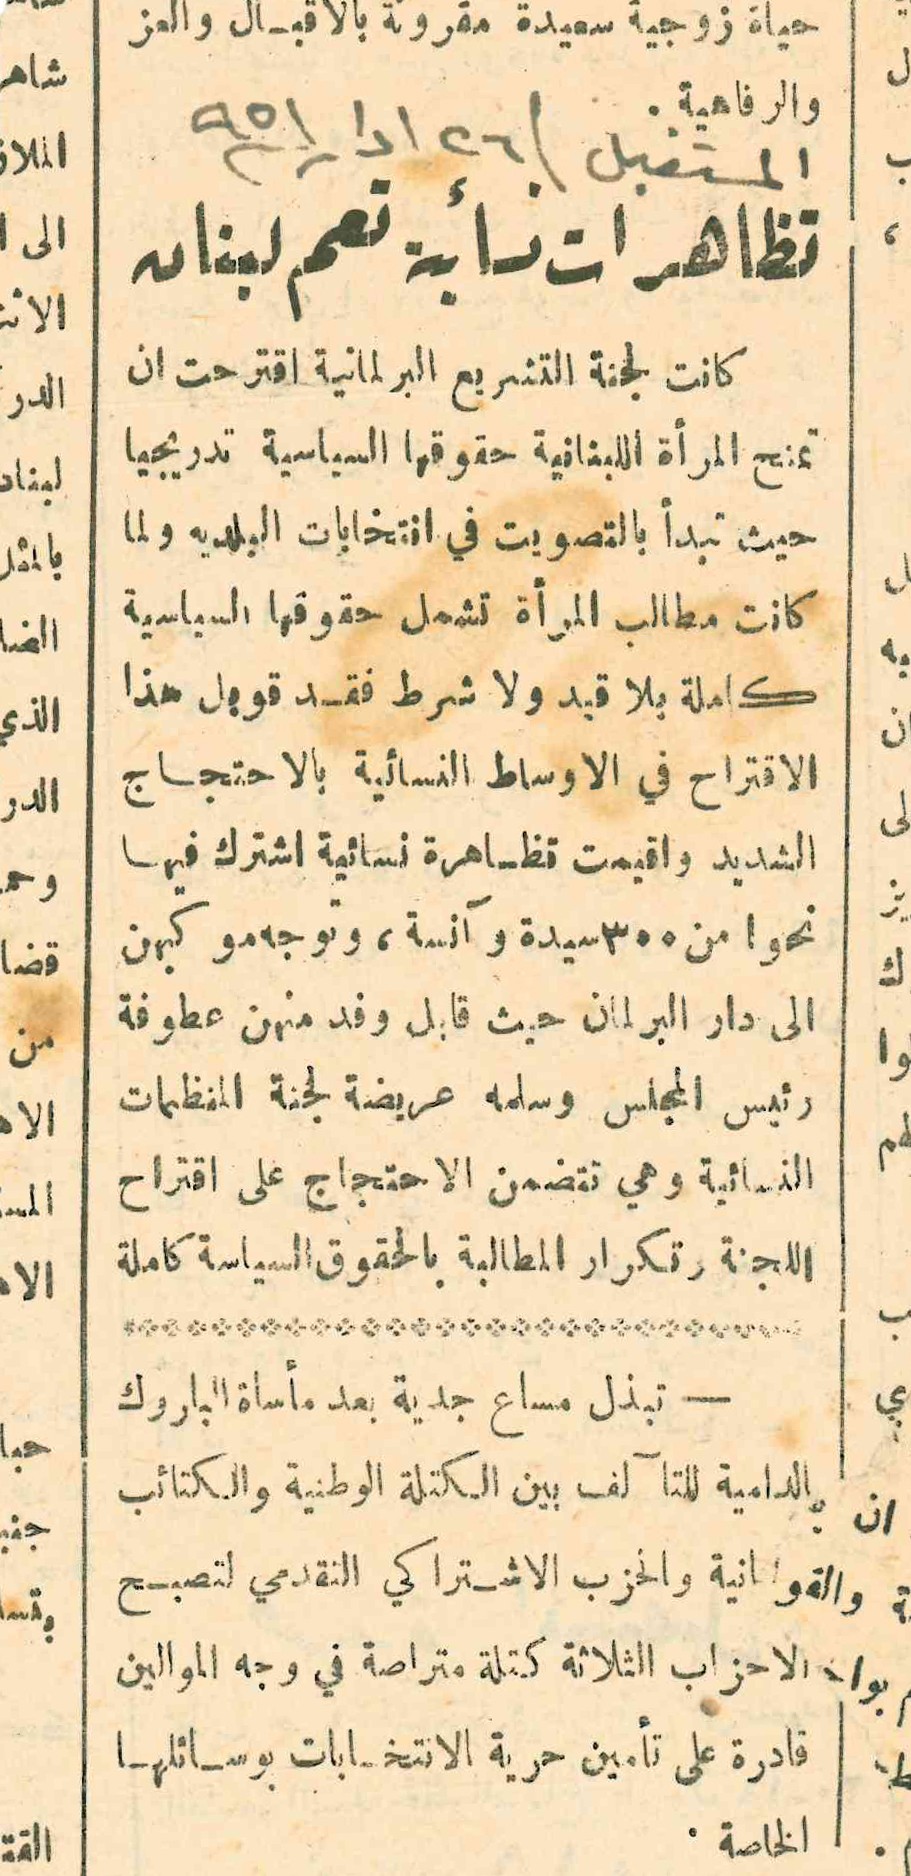 حياة زوجية سعيدة مقرونة بالاقبـال والعز
والرفاهية .
المستقبل / ٢٦ اذار ٩٥١
تظاهرات نسائية تعم لبنان
كانت لجنة التشريع البرلمانية اقترحت ان
تمنح المرأة اللبنانية حقوقها السياسية تدريجيا
حيث تبدأ بالتصويت في انتخابات البلديه ولما
كانت مطالب المرأة تشمل حقوقها السياسية
كاملة بلا قيد ولا شرط فقـد قوبل هذا
الاقتراح في الاوساط النسائية بالاحتجـاج
الشديد واقيمت تظـاهرة نسائية اشترك فيهـا
نحوا من ٣٠٠ سيدة وآنسة ، وتوجه موكبهن
الى دار البرلمان حيث قابل وفد منهن عطوفة
رئيس المجلس وسلمه عريضة لجنة المنظمات
النسائية وهي تتضمن الاحتجاج على اقتراح
اللجنة وتكرار المطالبة بالحقوق السياسة كاملة
— تبذل مساع جدية بعد مأساة الباروك
الدامية للتآلف بين الكتلة الوطنية والكتائب
اللبنانية والحزب الاشـتراكي التقدمي لتصبـح
الاحزاب الثلاثة كتلة متراصة في وجه الموالين
قادرة على تأمين حرية الانتخـابات بوسـائلهـا
الخاصة .